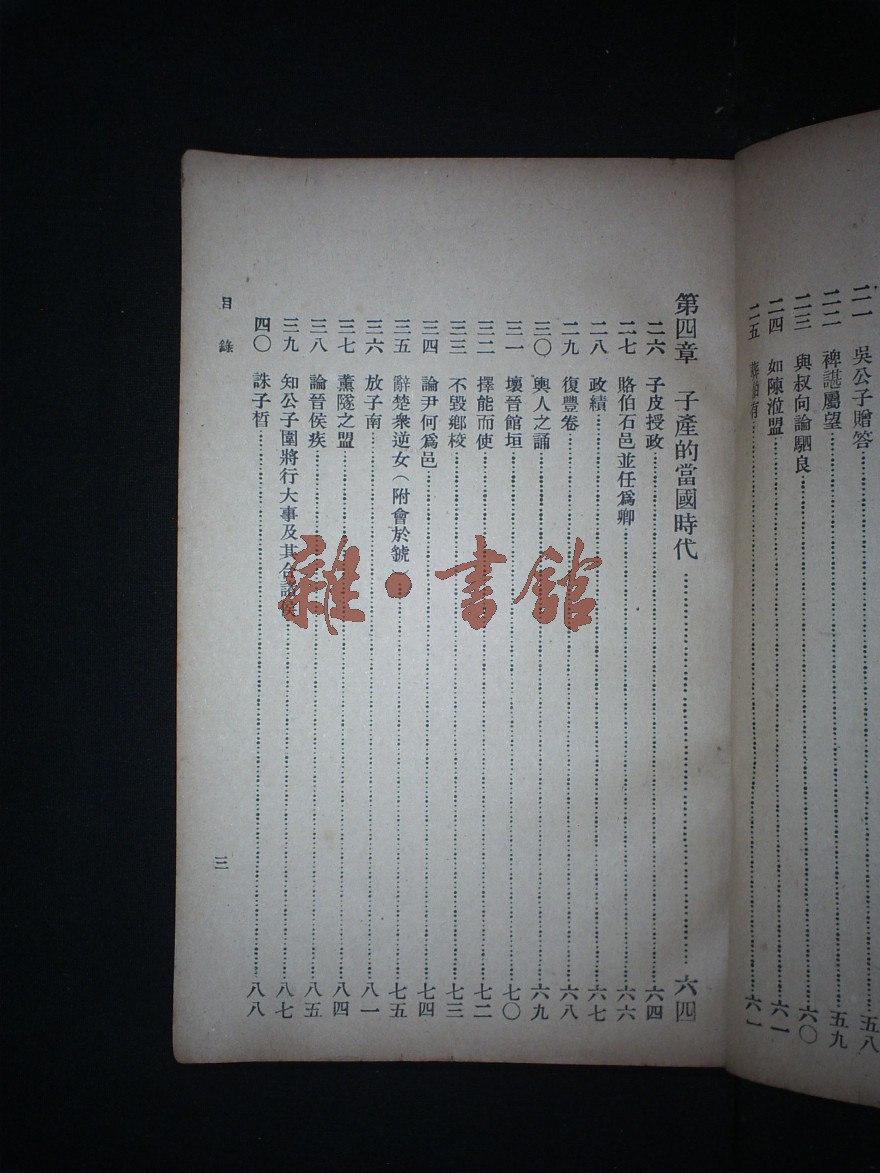 二一 吳公子贈答 五八
二二 裨諶屬望 五九
二三 與叔向論駟良 六〇
二四 如陳涖盟 六一
二五 葬伯有 六一
第四章 子產的當國時代 六四
二六 子皮授政 六四
二七 賂伯石邑並任爲卿 六六
二八 政績 六七
二九 復豐卷 六八
三〇 輿人之誦 六九
三一 壞晉館垣 七〇
三二 擇能而使 七二
三三 不毀鄉校 七三
三四 論尹何爲邑 七四
三五 辭楚衆逆女(附會於虢) 七五
三六 放子南 八一
三七 薰隧之盟 八四
三八 論晉侯疾 八五
三九 知公子圍將行大事及其合諸侯 八七
四〇 誅子晳 八八
目錄
三
雜·書館